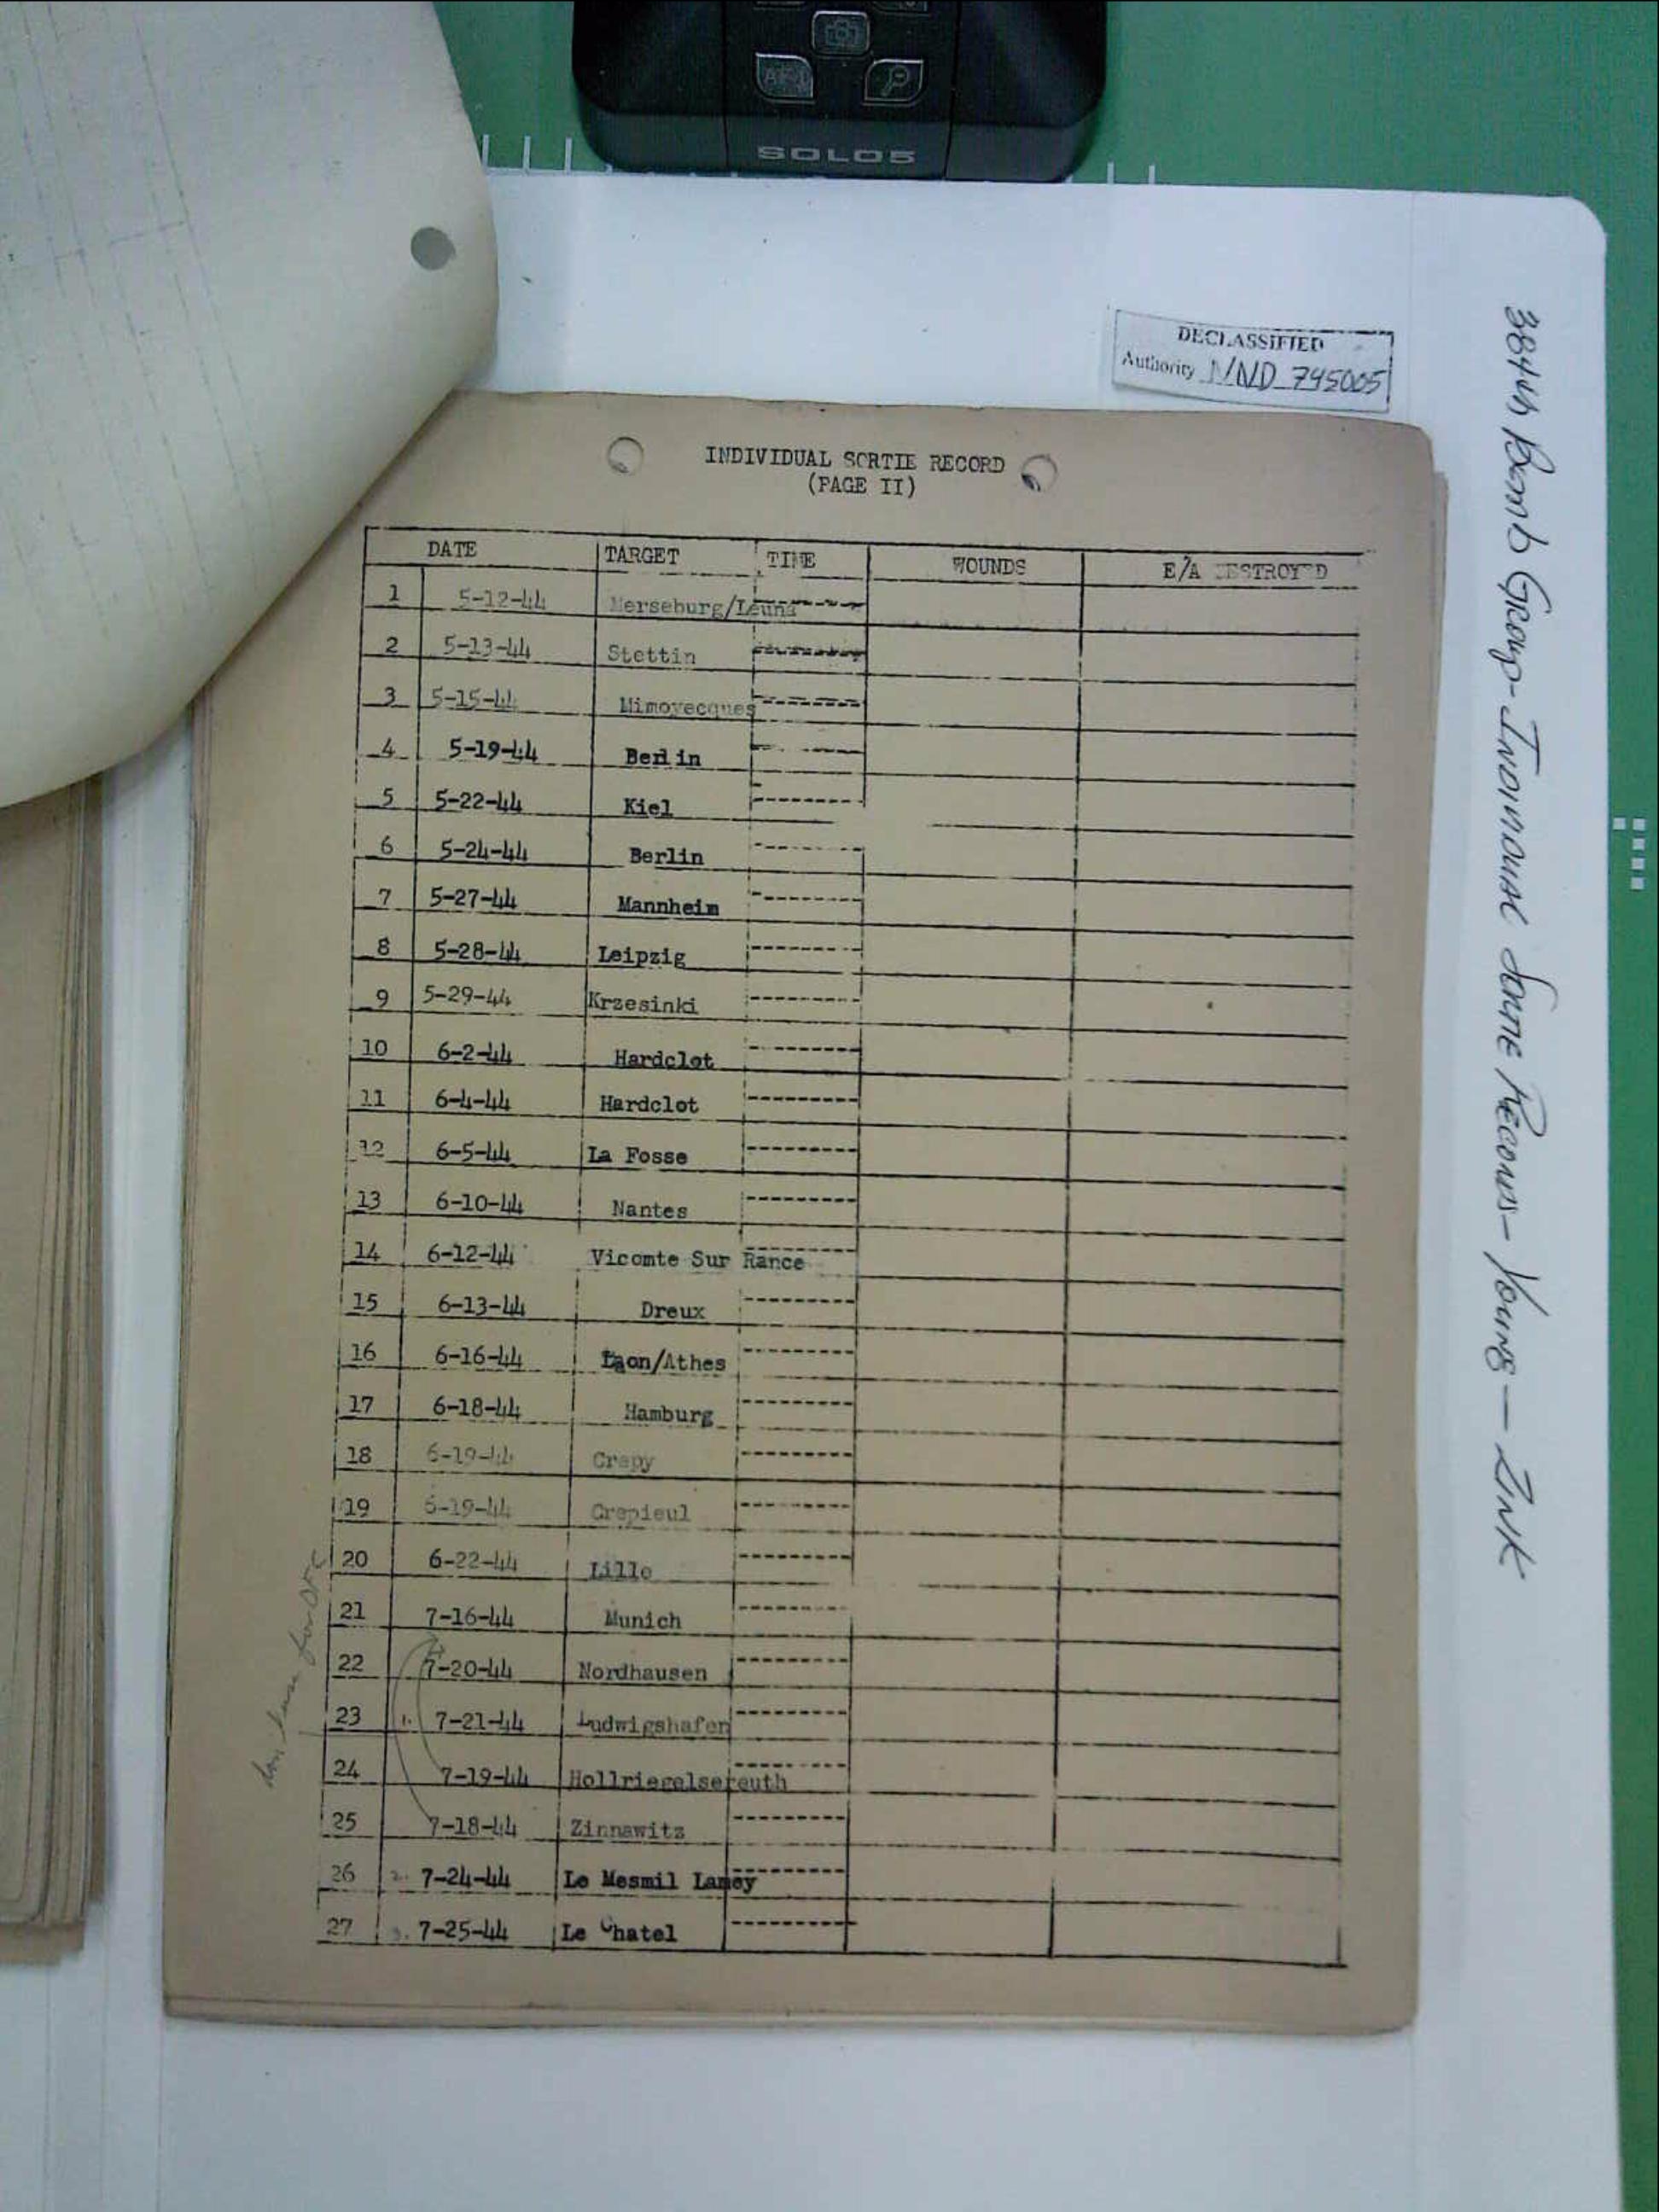 SOLO5
DECLASSIFIED
Authority NND 745005
384th Bomb Group - Individual Sortie Records - Young - Zink
INDIVIDUAL SORTIE RECORD
(PAGE II)
DATE TARGET TIME WOUNDS E/A DESTROYED
1 5-12-44 Merseburg/Leuna --------
2 5-13-44 Stettin --------
3 5-15-44 Mimoyecques --------
4 5-19-44 Berlin --------
5 5-22-44 Kiel --------
6 5-24-44 Berlin --------
7 5-27-44 Mannheim --------
8 5-28-44 Leipzig --------
9 5-29-44 Krzesinki --------
10 6-2-44 Hardclot --------
11 6-4-44 Hardclot --------
12 6-5-44 La Fosse --------
13 6-10-44 Nantes --------
14 6-12-44 Vicomte Sur Rance --------
15 6-13-44 Dreux --------
16 6-16-44 Laon/Athes --------
17 6-18-44 Hamburg --------
18 6-19-44 Crepy --------
19 6-19-44 Crepieul --------
20 6-22-44 Lille --------
21 7-16-44 Munich --------
22 7-20-44 Nordhausen --------
23 1. 7-21-44 Ludwigshafen --------
24 7-19-44 Hollriegelsereuth --------
25 7-18-44 Zinnawitz --------
26 2. 7-24-44 Le Mesmil Lamey --------
27 3. 7-25-44 Le Chatel --------